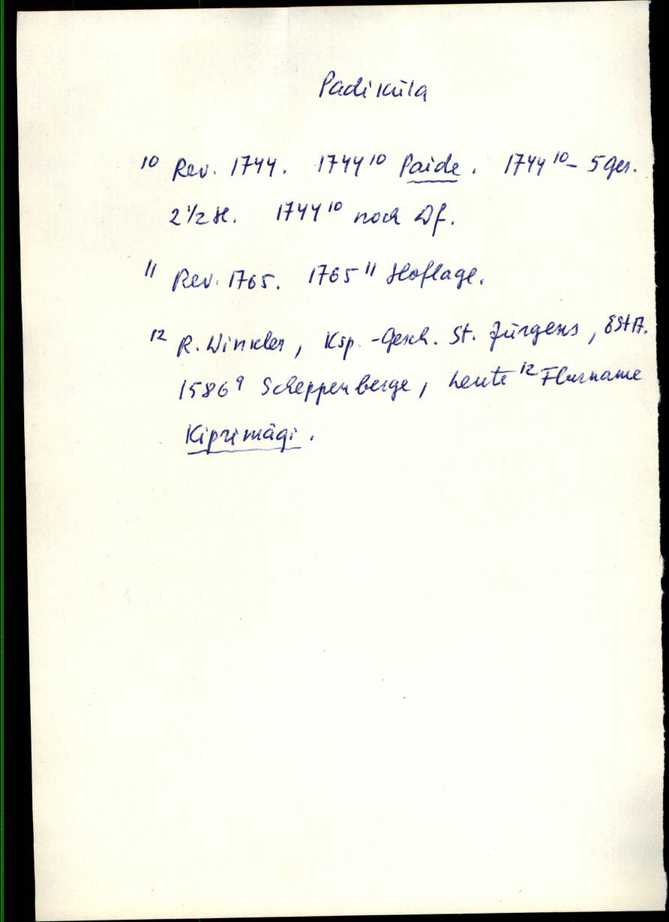 Padiküla
10 Rev. 1744. 1744 10 Paide. 1744 10 - 5 Ges.
2 1/2 H. 1744 10 noch Df.
11 Rev. 1765. 1765 11 Hoflage.
12 R. Winkler, Ksp.-Gesch. St. Jürgens, EStA.
1586 9 Scheppenberge, heute 12 Flurname
Kiprimägi.